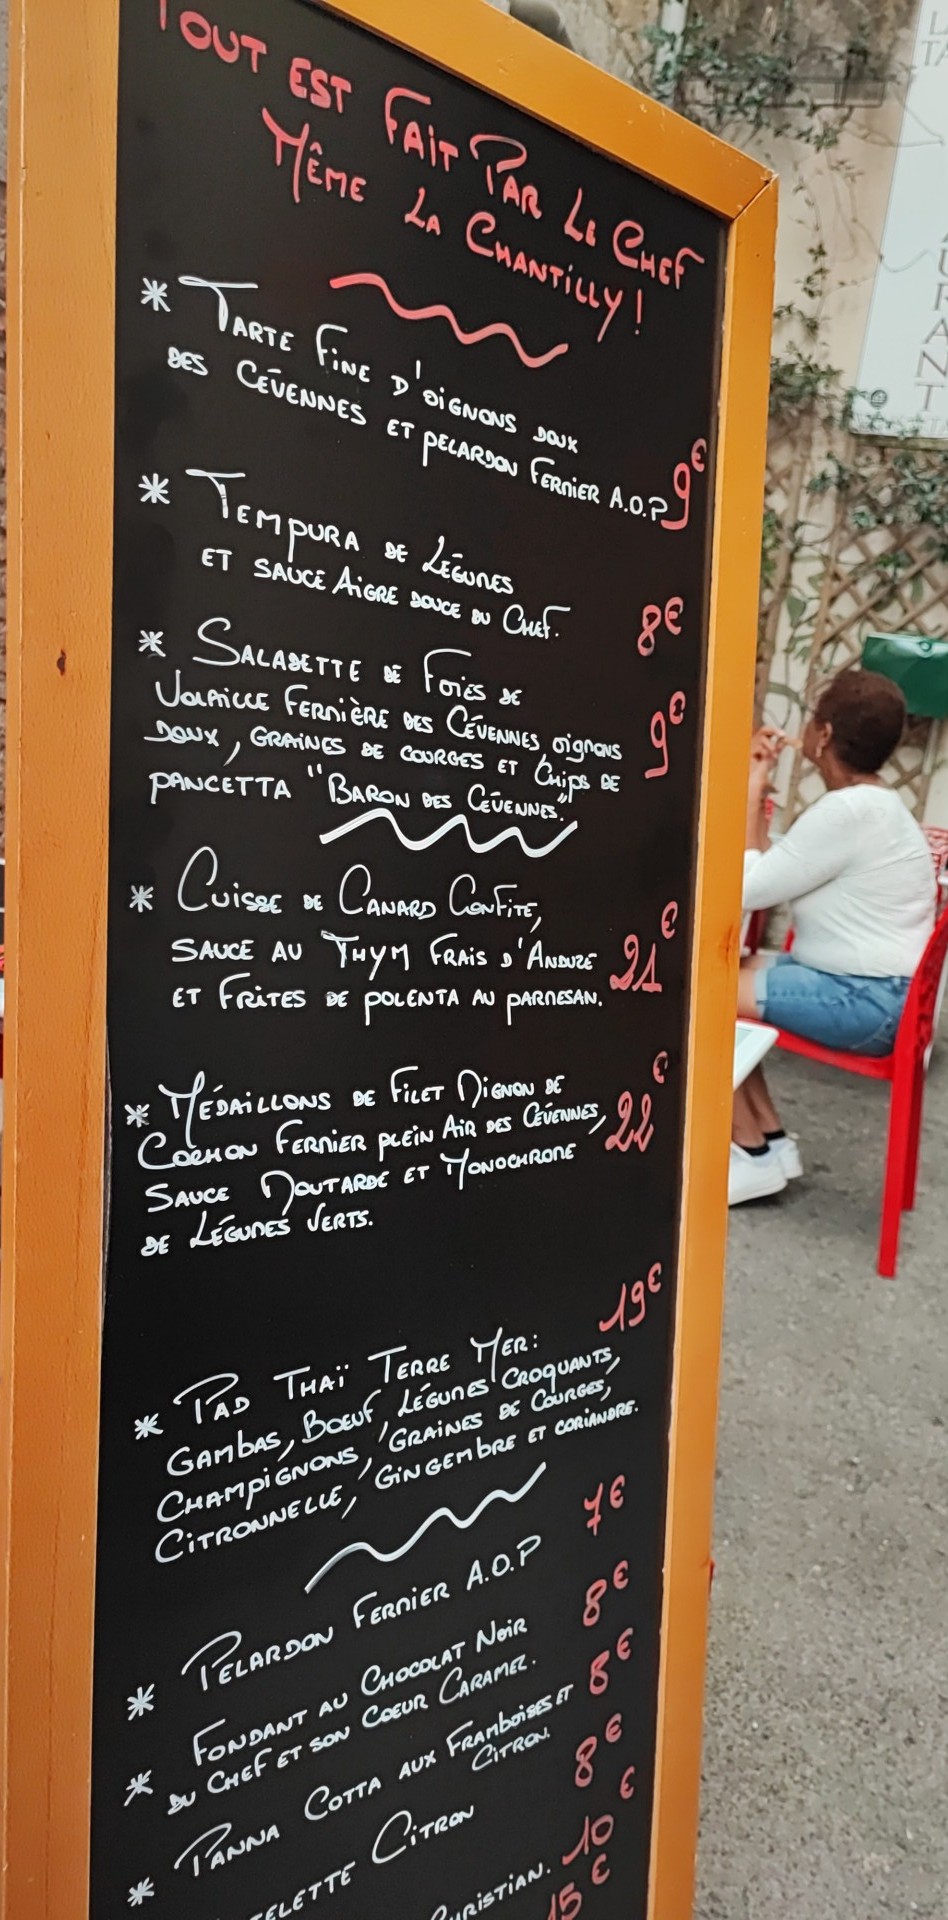 TOUT EST FAIT PAR LE CHEF
MÊME LA CHANTILLY!
* TARTE FINE D'OIGNONS DOUX
DES CÉVENNES ET PELARDON FERMIER A.O.P 9€
* TEMPURA DE LÉGUMES
ET SAUCE AIGRE DOUCE DU CHEF. 8€
* SALADETTE DE FOIES DE
VOLAILLE FERMIÈRE DES CÉVENNES, OIGNONS 9€
DOUX, GRAINES DE COURGES ET CHIPS DE
PANCETTA "BARON DES CÉVENNES".
* CUISSE DE CANARD CONFITE,
SAUCE AU THYM FRAIS D'ANDUZE 21€
ET FRITES DE POLENTA AU PARMESAN.
* MÉDAILLONS DE FILET MIGNON DE
COCHON FERMIER PLEIN AIR DES CÉVENNES, 22€
SAUCE MOUTARDE ET MONOCHROME
DE LÉGUMES VERTS.
* PAD THAÏ TERRE MER: 19€
GAMBAS, BOEUF, LÉGUMES CROQUANTS,
CHAMPIGNONS, GRAINES DE COURGES,
CITRONNELLE, GINGEMBRE ET CORIANDRE.
* PELARDON FERMIER A.O.P 7€
* FONDANT AU CHOCOLAT NOIR 8€
DU CHEF ET SON COEUR CARAMEL.
* PANNA COTTA AUX FRAMBOISES ET 8€
CITRON.
CITRON 8€
CHRISTIAN. 10€
15€